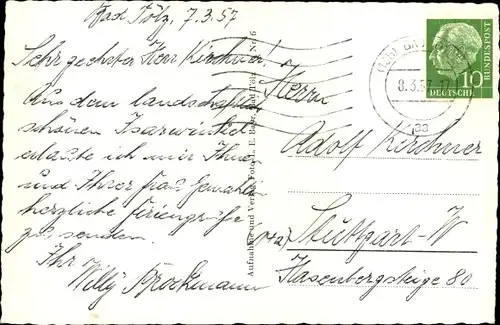 Bad Tölz, 7.3.57
Sehr geehrter Herr Kirchner!
Aus dem landschaftlich
schönen Isarwinkel
erlaube ich mir Ihnen
und Ihrer Frau Gemahlin
herzliche Feriengrüße
zu senden.
Ihr
Willy Brockmann
Aufnahme und Verlag Foto
Bad Tölz
Nr. 6
Herrn
Adolf Kirchner
(14a) Stuttgart-W
Hasenbergsteige 80
8.3.57
10
DEUTSCHE
BUNDESPOST